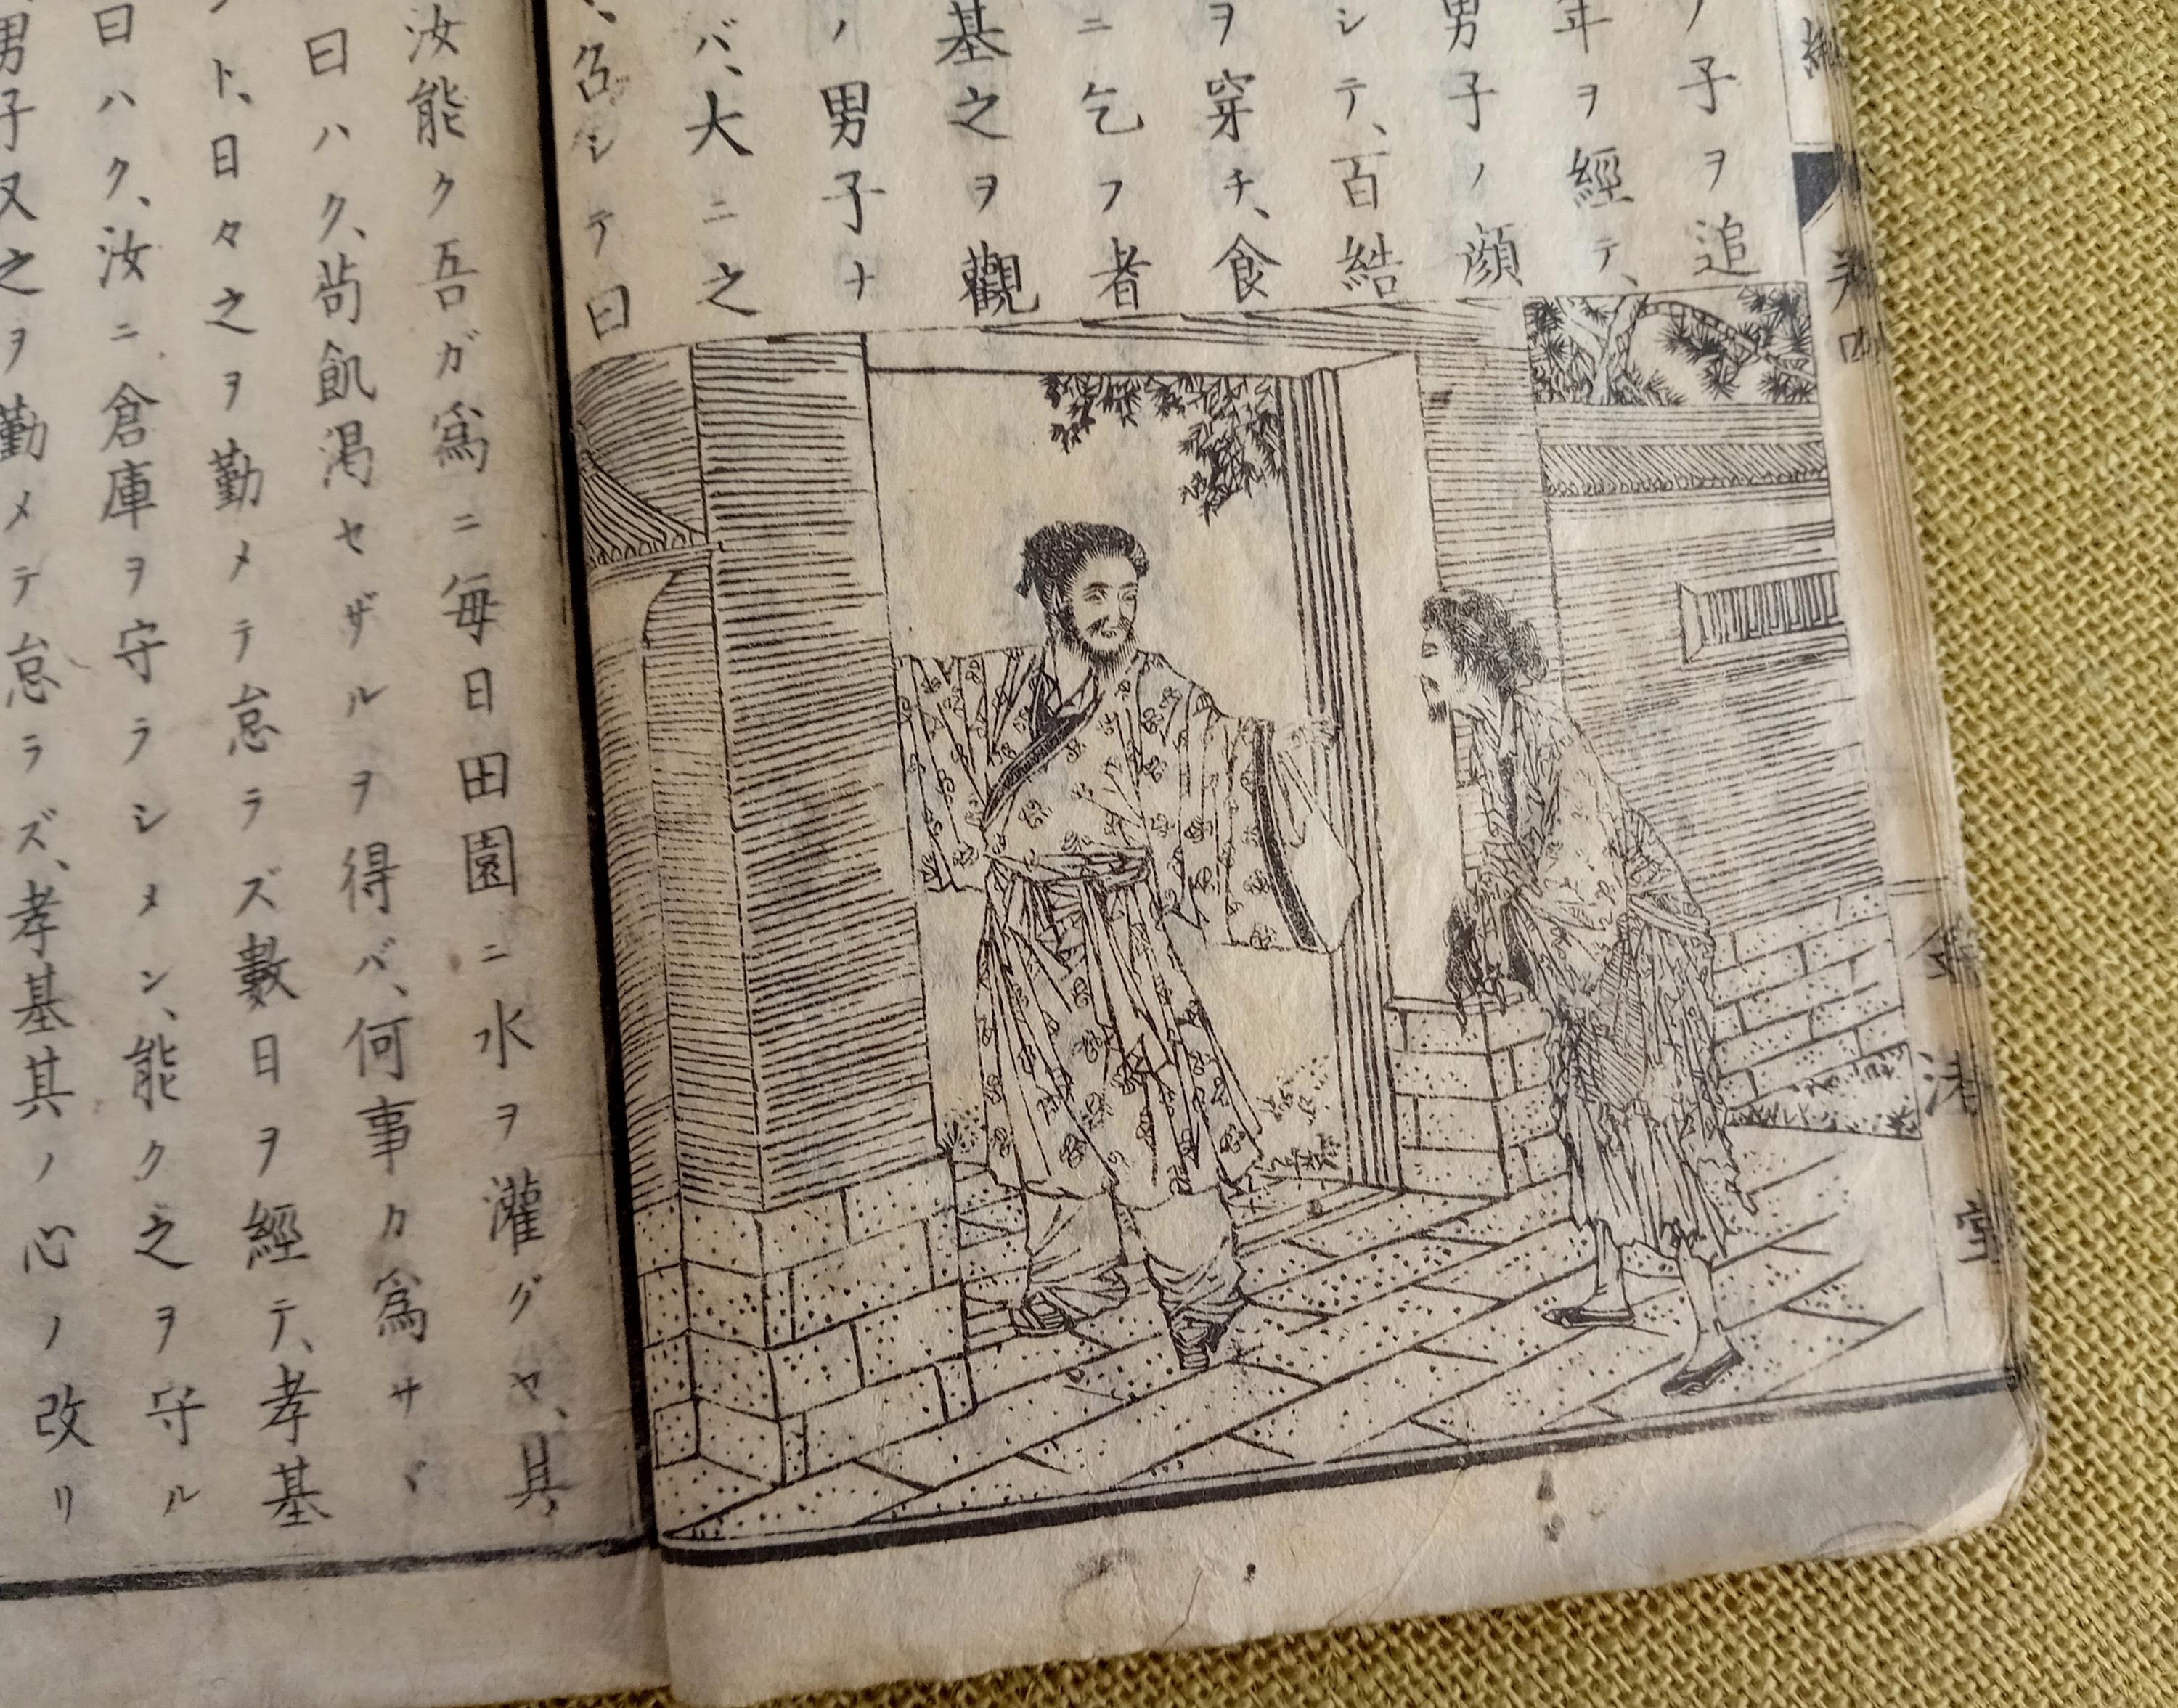 ノ子ヲ追
年ヲ經テ、
男子ノ顔
シテ、百結
ヲ穿チ、食
ニ乞フ者
基之ヲ觀
ノ男子ナ
バ、大ニ之
召シテ曰
汝能ク吾ガ爲ニ毎日田園ニ水ヲ灌グヤ、其
曰ハク、苟飢渇セザルヲ得バ、何事カ爲サヾ
ト、日々之ヲ勤メテ怠ラズ數日ヲ經テ、孝基
曰ハク、汝ニ倉庫ヲ守ラシメン、能ク之ヲ守ル
男子又之ヲ勤メテ怠ラズ、孝基其ノ心ノ改リ